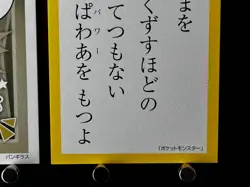 まを
くずすほどの
てつもない
ぱわあを もつよ
パワー
(ポケットモンスター)
バンギラス